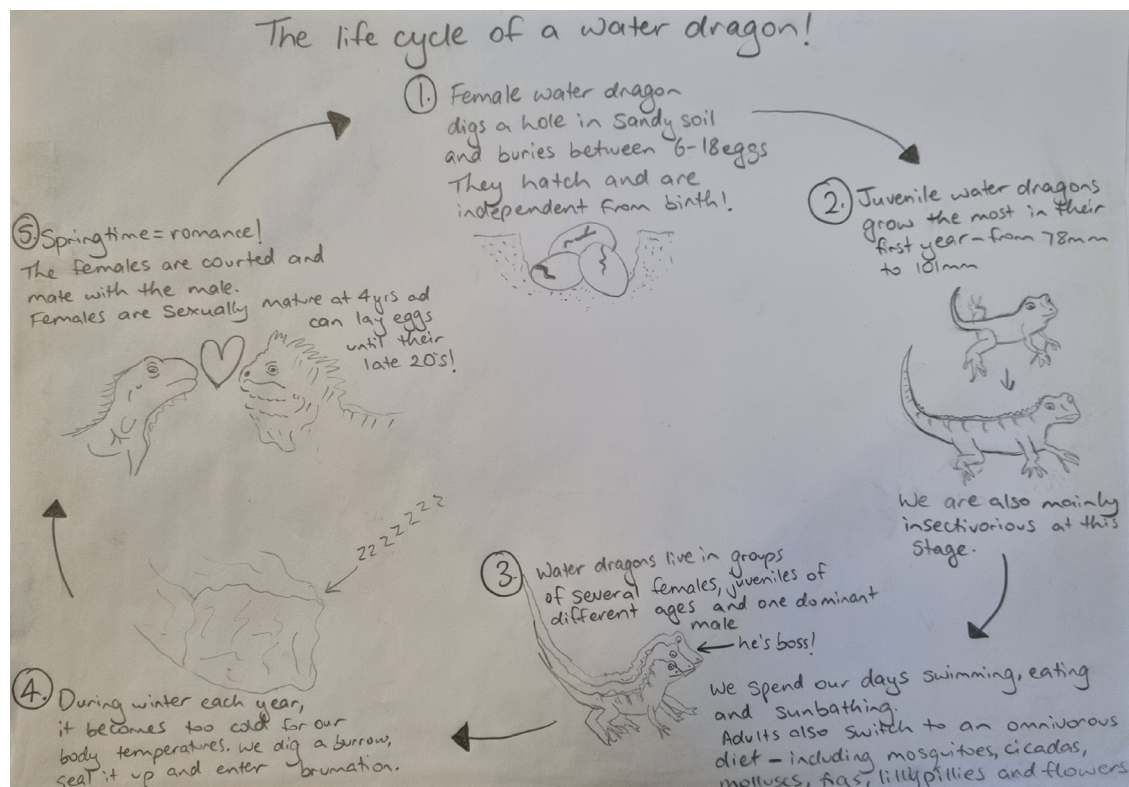 The life cycle of a water dragon!
1. Female water dragon
digs a hole in sandy soil
and buries between 6-18eggs
They hatch and are
independent from birth!
2. Juvenile water dragons
grow the most in their
first year - from 78mm
to 101mm
We are also mainly
insectivorious at this
stage.
3. Water dragons live in groups
of several females, juveniles of
different ages and one dominant
male
he's boss!
We spend our days swimming, eating
and sunbathing.
Adults also switch to an omnivorous
diet - including mosquitoes, cicadas,
molluscs, figs, lillypillies and flowers
4. During winter each year,
it becomes too cold for our
body temperatures. We dig a burrow,
seal it up and enter brumation.
ZZZZZZZ
5. Springtime = romance!
The females are courted and
mate with the male.
Females are sexually mature at 4yrs ad
can lay eggs
until their
late 20's!